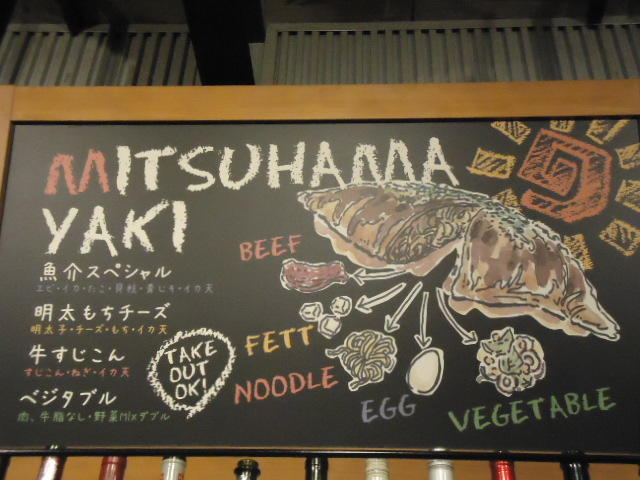 MITSUHAMA
YAKI
魚介スペシャル
エビ・イカ・たこ・貝柱・青じそ・イカ天
明太もちチーズ
明太子・チーズ・もち・イカ天
牛すじこん
すじこん・ねぎ・イカ天
ベジタブル
肉、牛脂なし・野菜Mixダブル
TAKE
OUT
OK!
BEEF
FETT
NOODLE
EGG
VEGETABLE